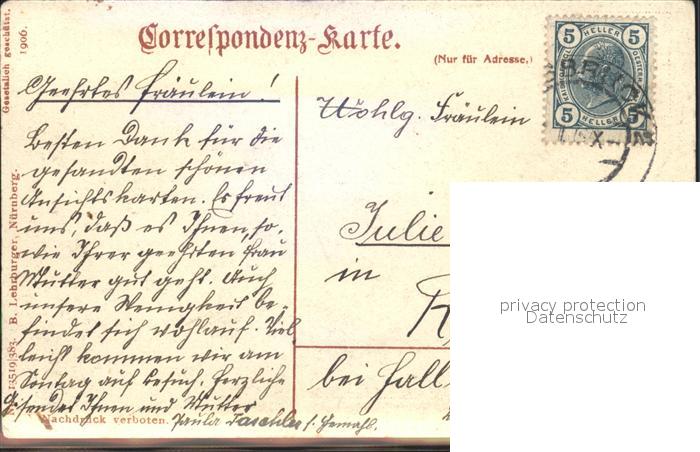 Correspondenz-Karte.
(Nur für Adresse.)
Gesetzlich geschützt.
1906.
5 HELLER 5
5 HELLER 5
Geehrtes Fräulein!
Besten Dank für die
gesandten schönen
Ansichtskarten. Es freut
uns, daß es Ihnen, so,
wie Ihrer geehrten Frau
Mutter gut geht. Auch
unsere Wenigkeit be-
findet sich wohlauf. Viel
leicht kommen wir am
Sonntag auf Besuch. Herzliche
Ihnen und Mutter
Paula Taschler s. Gemahl.
Wohlg. Fräulein
Julie
in
bei Hall
13510/383. B. Lehrburger, Nürnberg.
Nachdruck verboten.
privacy protection
Datenschutz